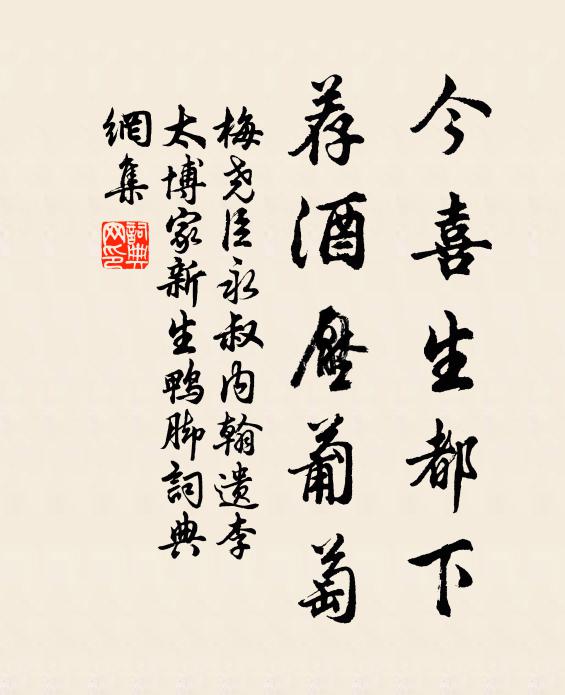 今喜生都下
荐酒壓葡萄
梅尧臣永叔内翰遗李
太博家新生鸭脚詞典
網集
詞典網印